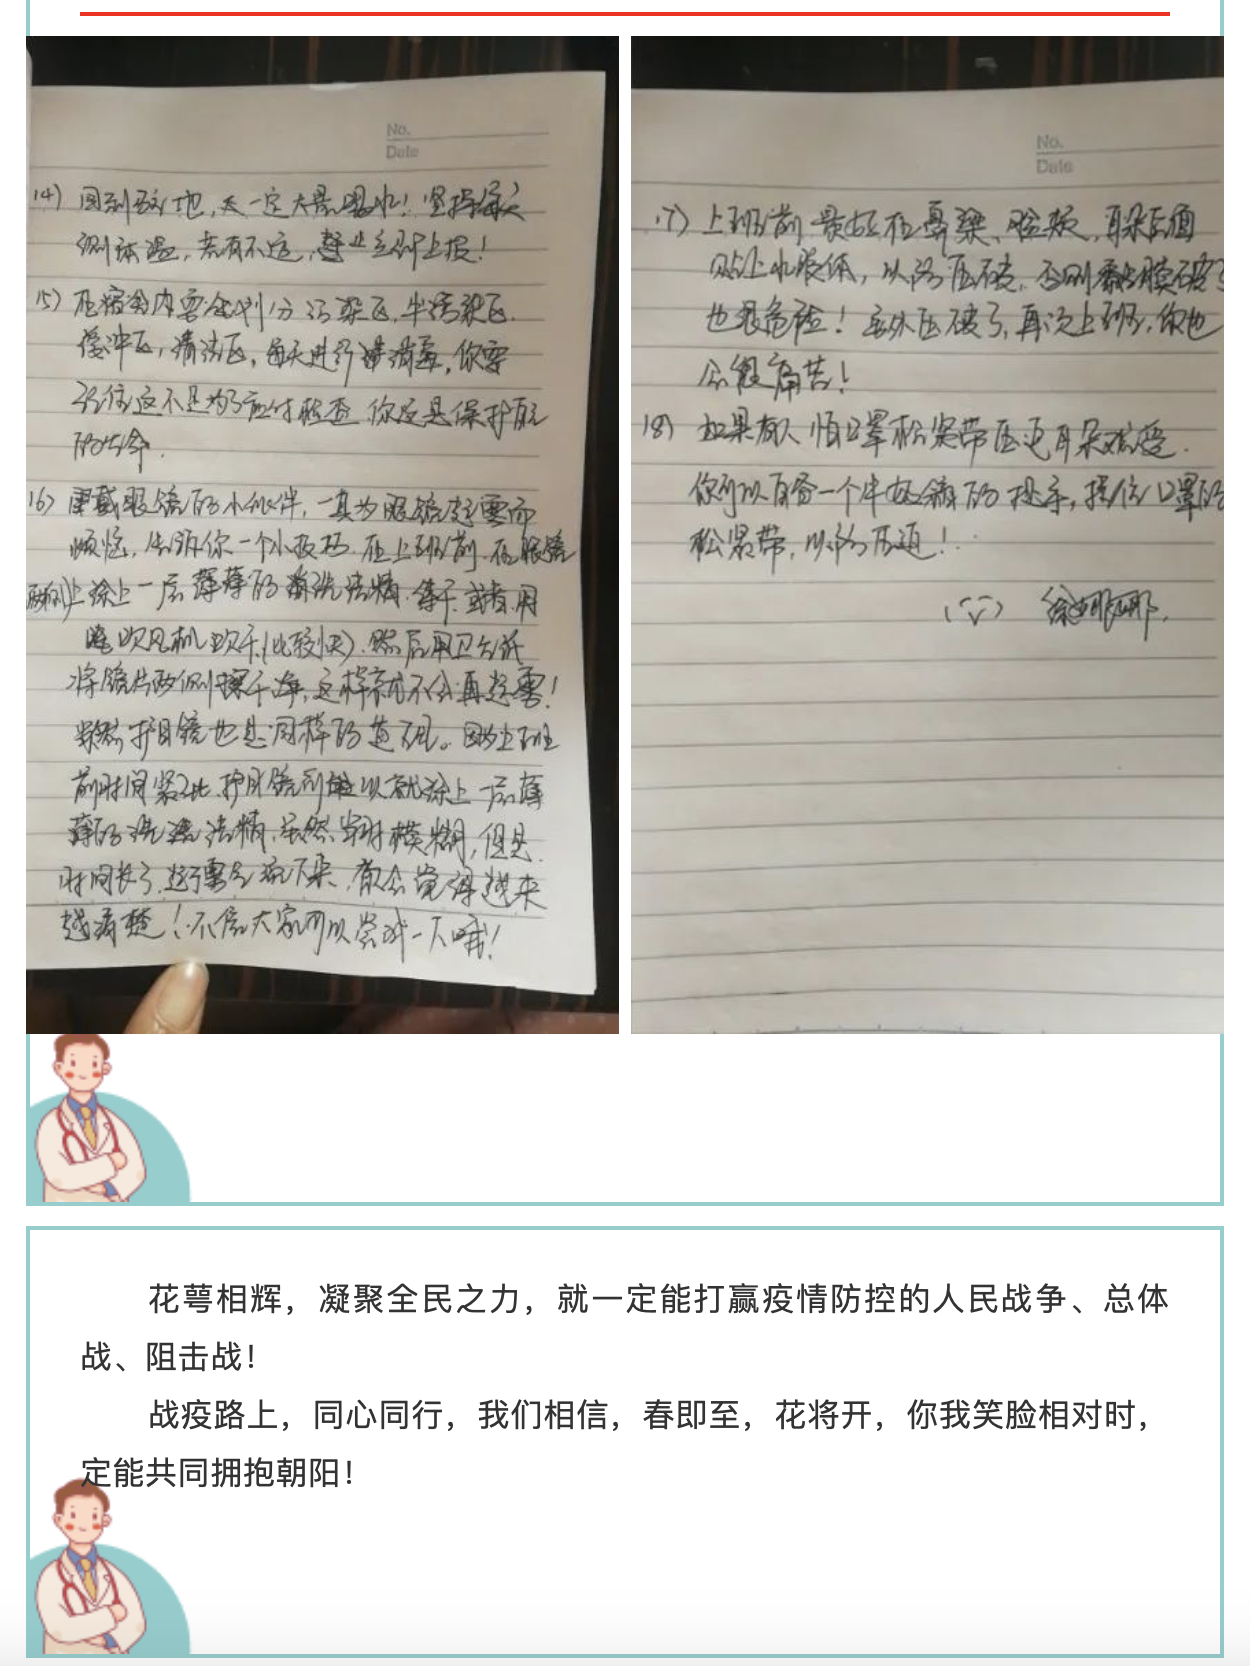 No.
Date
14) 回到驻地，一定大量喝水！坚持每天
测体温，若有不适，立即上报！
15) 在宿舍内要会划分污染区，半污染区，
缓冲区，清洁区，每天进行消毒，你要
记住这不是为了应付检查，你这是保护自己
的生命．
16) 戴眼镜的小伙伴，一直为眼镜起雾而
烦恼，告诉你一个小技巧，在上班前，在眼镜
两侧上涂上一层薄薄的洗洁精，等干，或者用
吹风机吹干（比较快）．然后用卫生纸
将镜片两侧擦干净，这样就不会再起雾！
当然护目镜也是同样的道理。因为上班
前时间紧张，护目镜可以就涂上一层薄
薄的洗洁精，虽然当时模糊，但是．
时间长了，起了雾会流下来，都会觉得越来
越清楚！不信大家可以尝试一下哦！
No.
Date
17) 上班前最好在鼻梁、脸颊，耳朵后面
贴上水胶体，以防压破，否则黏膜破了
也很危险！另外压破了，再次上班，你也
会很痛苦！
18) 如果有人怕口罩松紧带压迫耳朵难受．
你可以自备一个牛奶箱的提手，提住口罩的
松紧带，以防压迫！
徐娜娜．
花萼相辉，凝聚全民之力，就一定能打赢疫情防控的人民战争、总体
战、阻击战！
战疫路上，同心同行，我们相信，春即至，花将开，你我笑脸相对时，
定能共同拥抱朝阳！